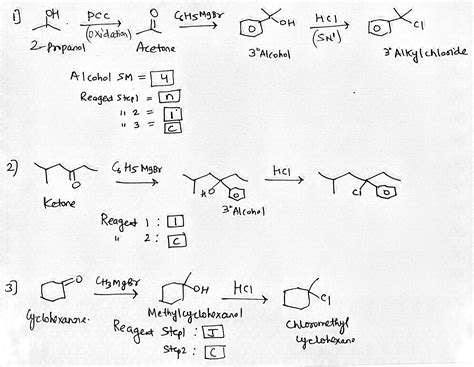 1] OH PCC (Oxidation) O C6H5MgBr OH HCl (SN1) Cl
2-Propanol Acetone 3° Alcohol 3° Alkylchloride
Alcohol SM = 4
Reagent Step 1 = n
" 2 = i
" 3 = C
2) O C6H5MgBr HO HCl Cl
Ketone 3° Alcohol
Reagent 1 : I
" 2 : C
3] O CH3MgBr OH HCl Cl
Cyclohexanne Methylcyclohexanol Chloromethyl
cyclohexane
Reagent Step1 : J
Step2 : C